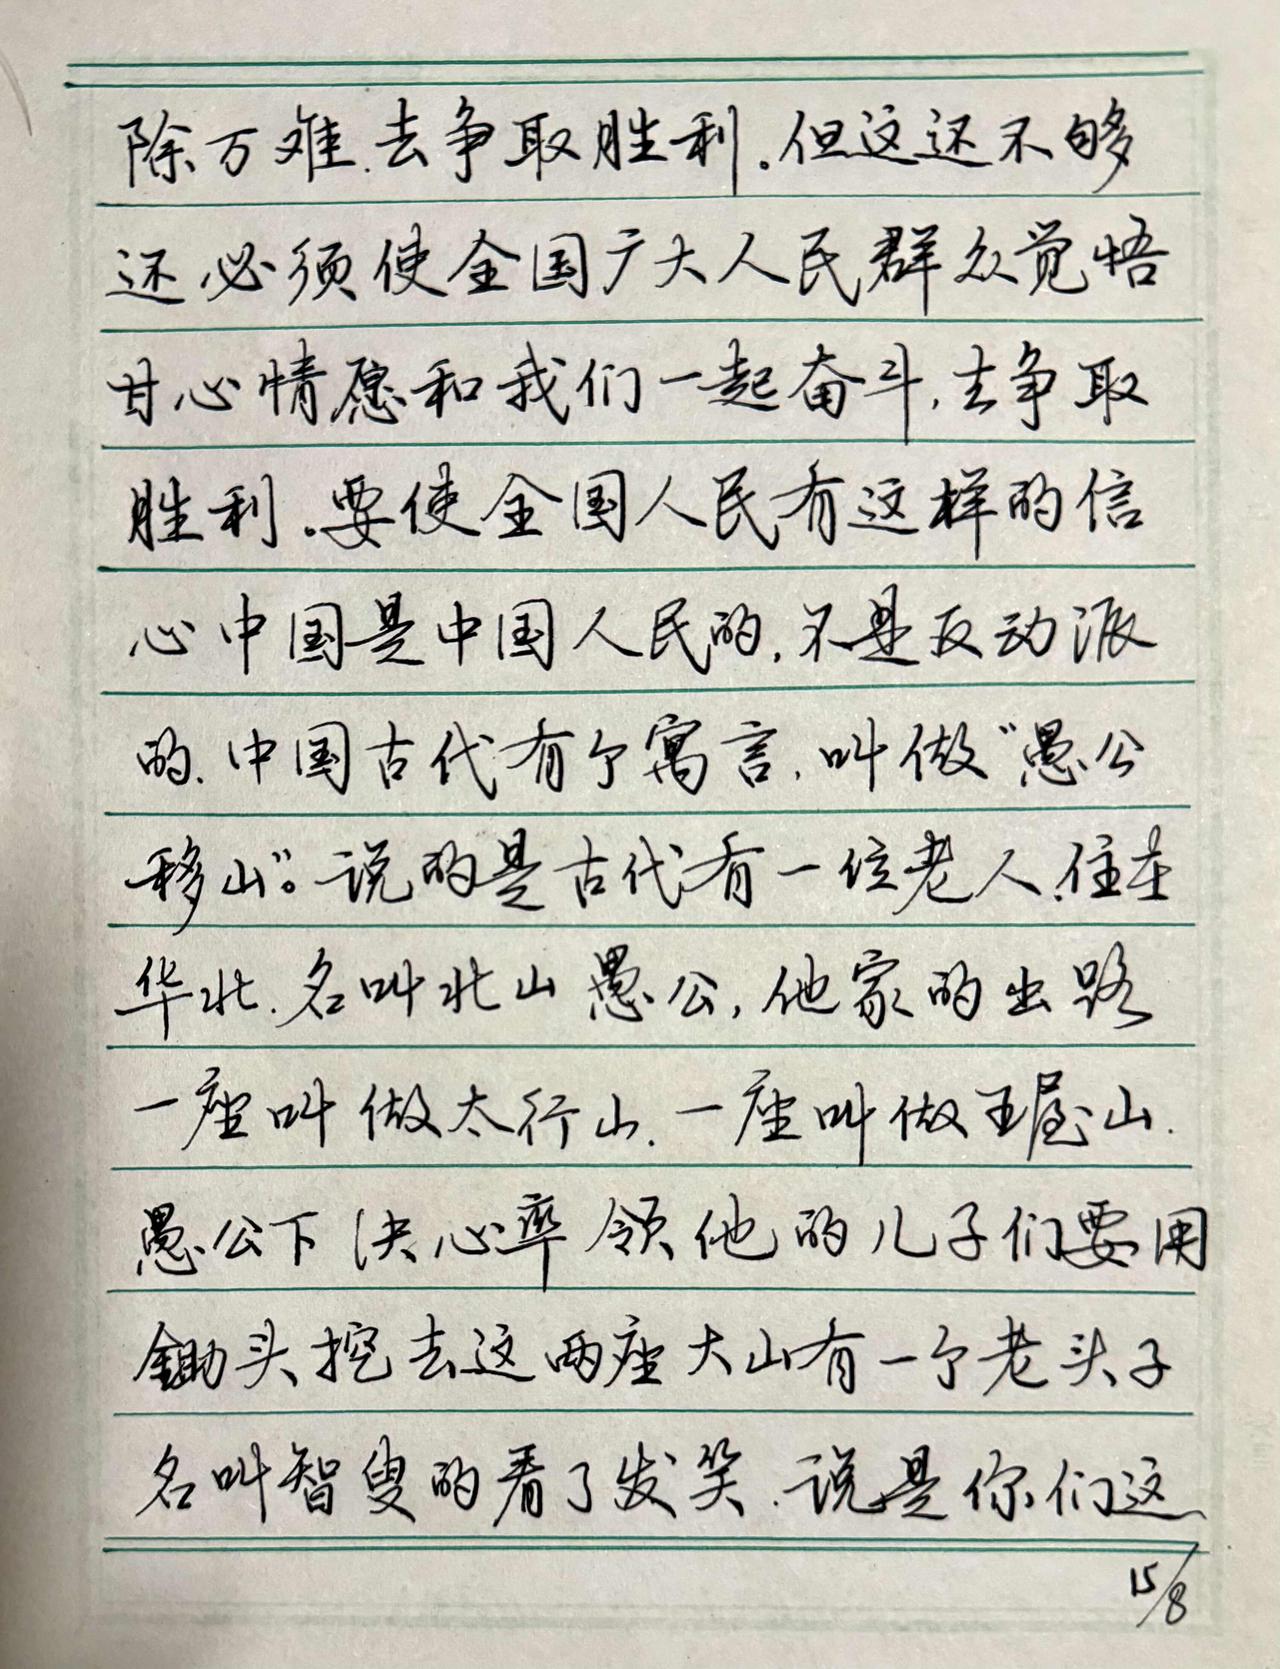 除万难.去争取胜利。但这还不够
还必须使全国广大人民群众觉悟
甘心情愿和我们一起奋斗,去争取
胜利。要使全国人民有这样的信
心中国是中国人民的,不是反动派
的.中国古代有个寓言,叫做“愚公
移山”。说的是古代有一位老人,住在
华北.名叫北山愚公,他家的出路
一座叫做太行山.一座叫做王屋山.
愚公下决心率领他的儿子们要用
锄头挖去这两座大山有一个老头子
名叫智叟的看了发笑.说是你们这
15/8